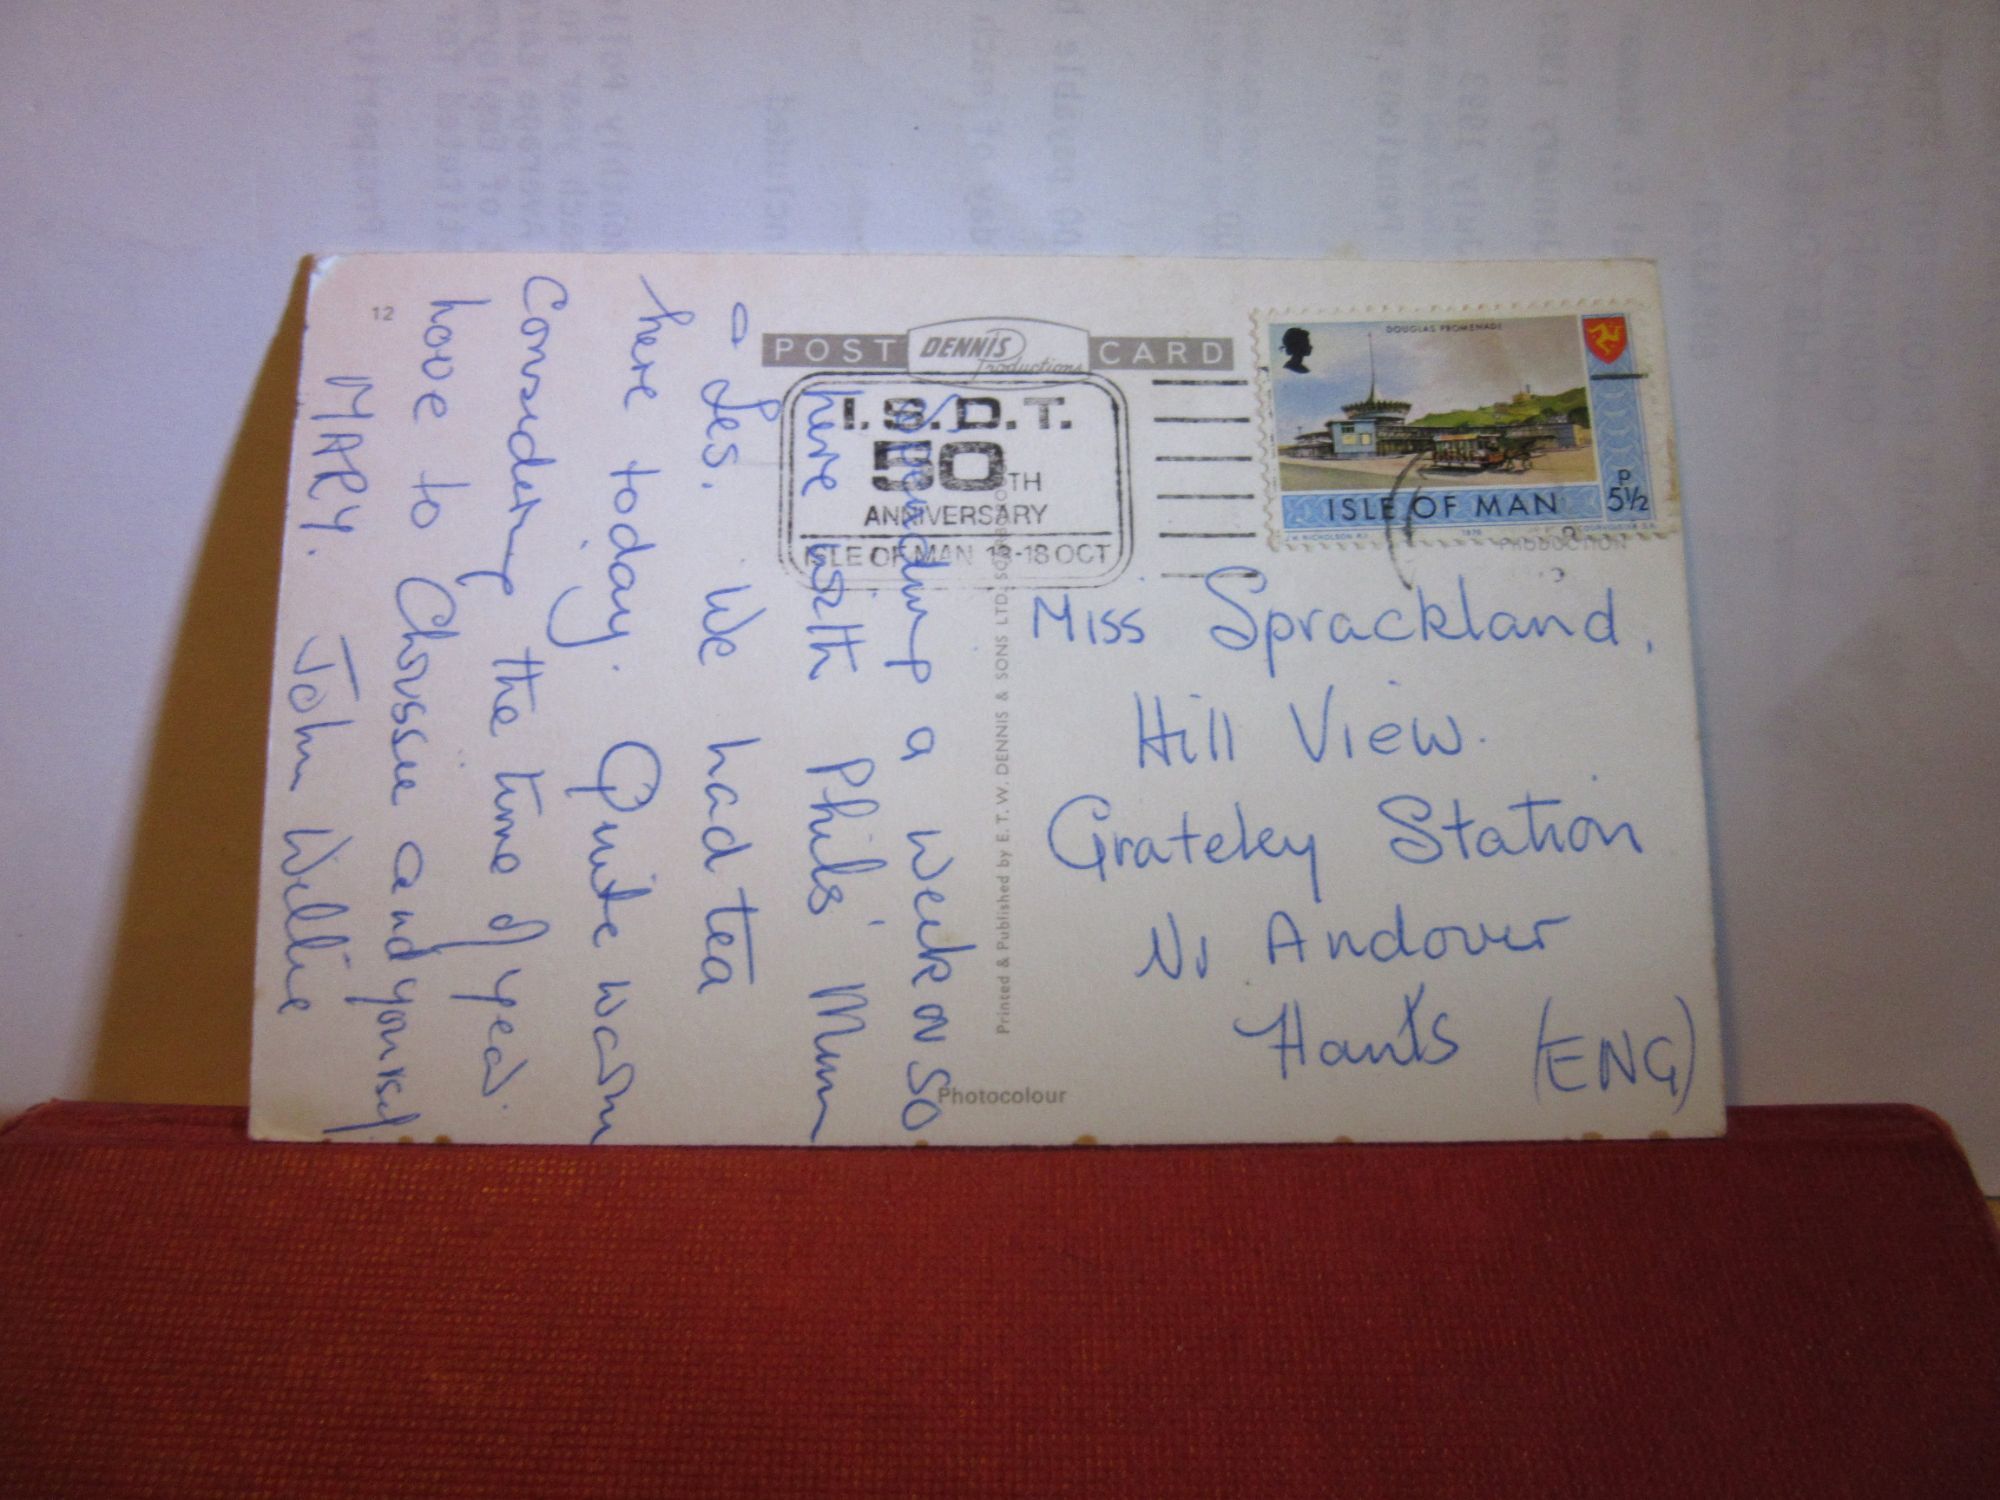 12
POST DENNIS Productions CARD
I.S.D.T.
50TH
ANNIVERSARY
ISLE OF MAN 13-18 OCT
DOUGLAS PROMENADE
ISLE OF MAN
5½P
J.H. NICHOLSON R.I. 1973 COURVOISIER S.A.
Spending a week or so
here with Phils' Mum
& Les. We had tea
here today. Quite warm
Considering the time of year.
Love to Chrissie and yourself
MARY. John Willie
Printed & Published by E.T.W. DENNIS & SONS LTD. SCARBORO
Miss Sprackland,
Hill View.
Grateley Station
Nr Andover
Hants (ENG)
Photocolour
PRODUCTION